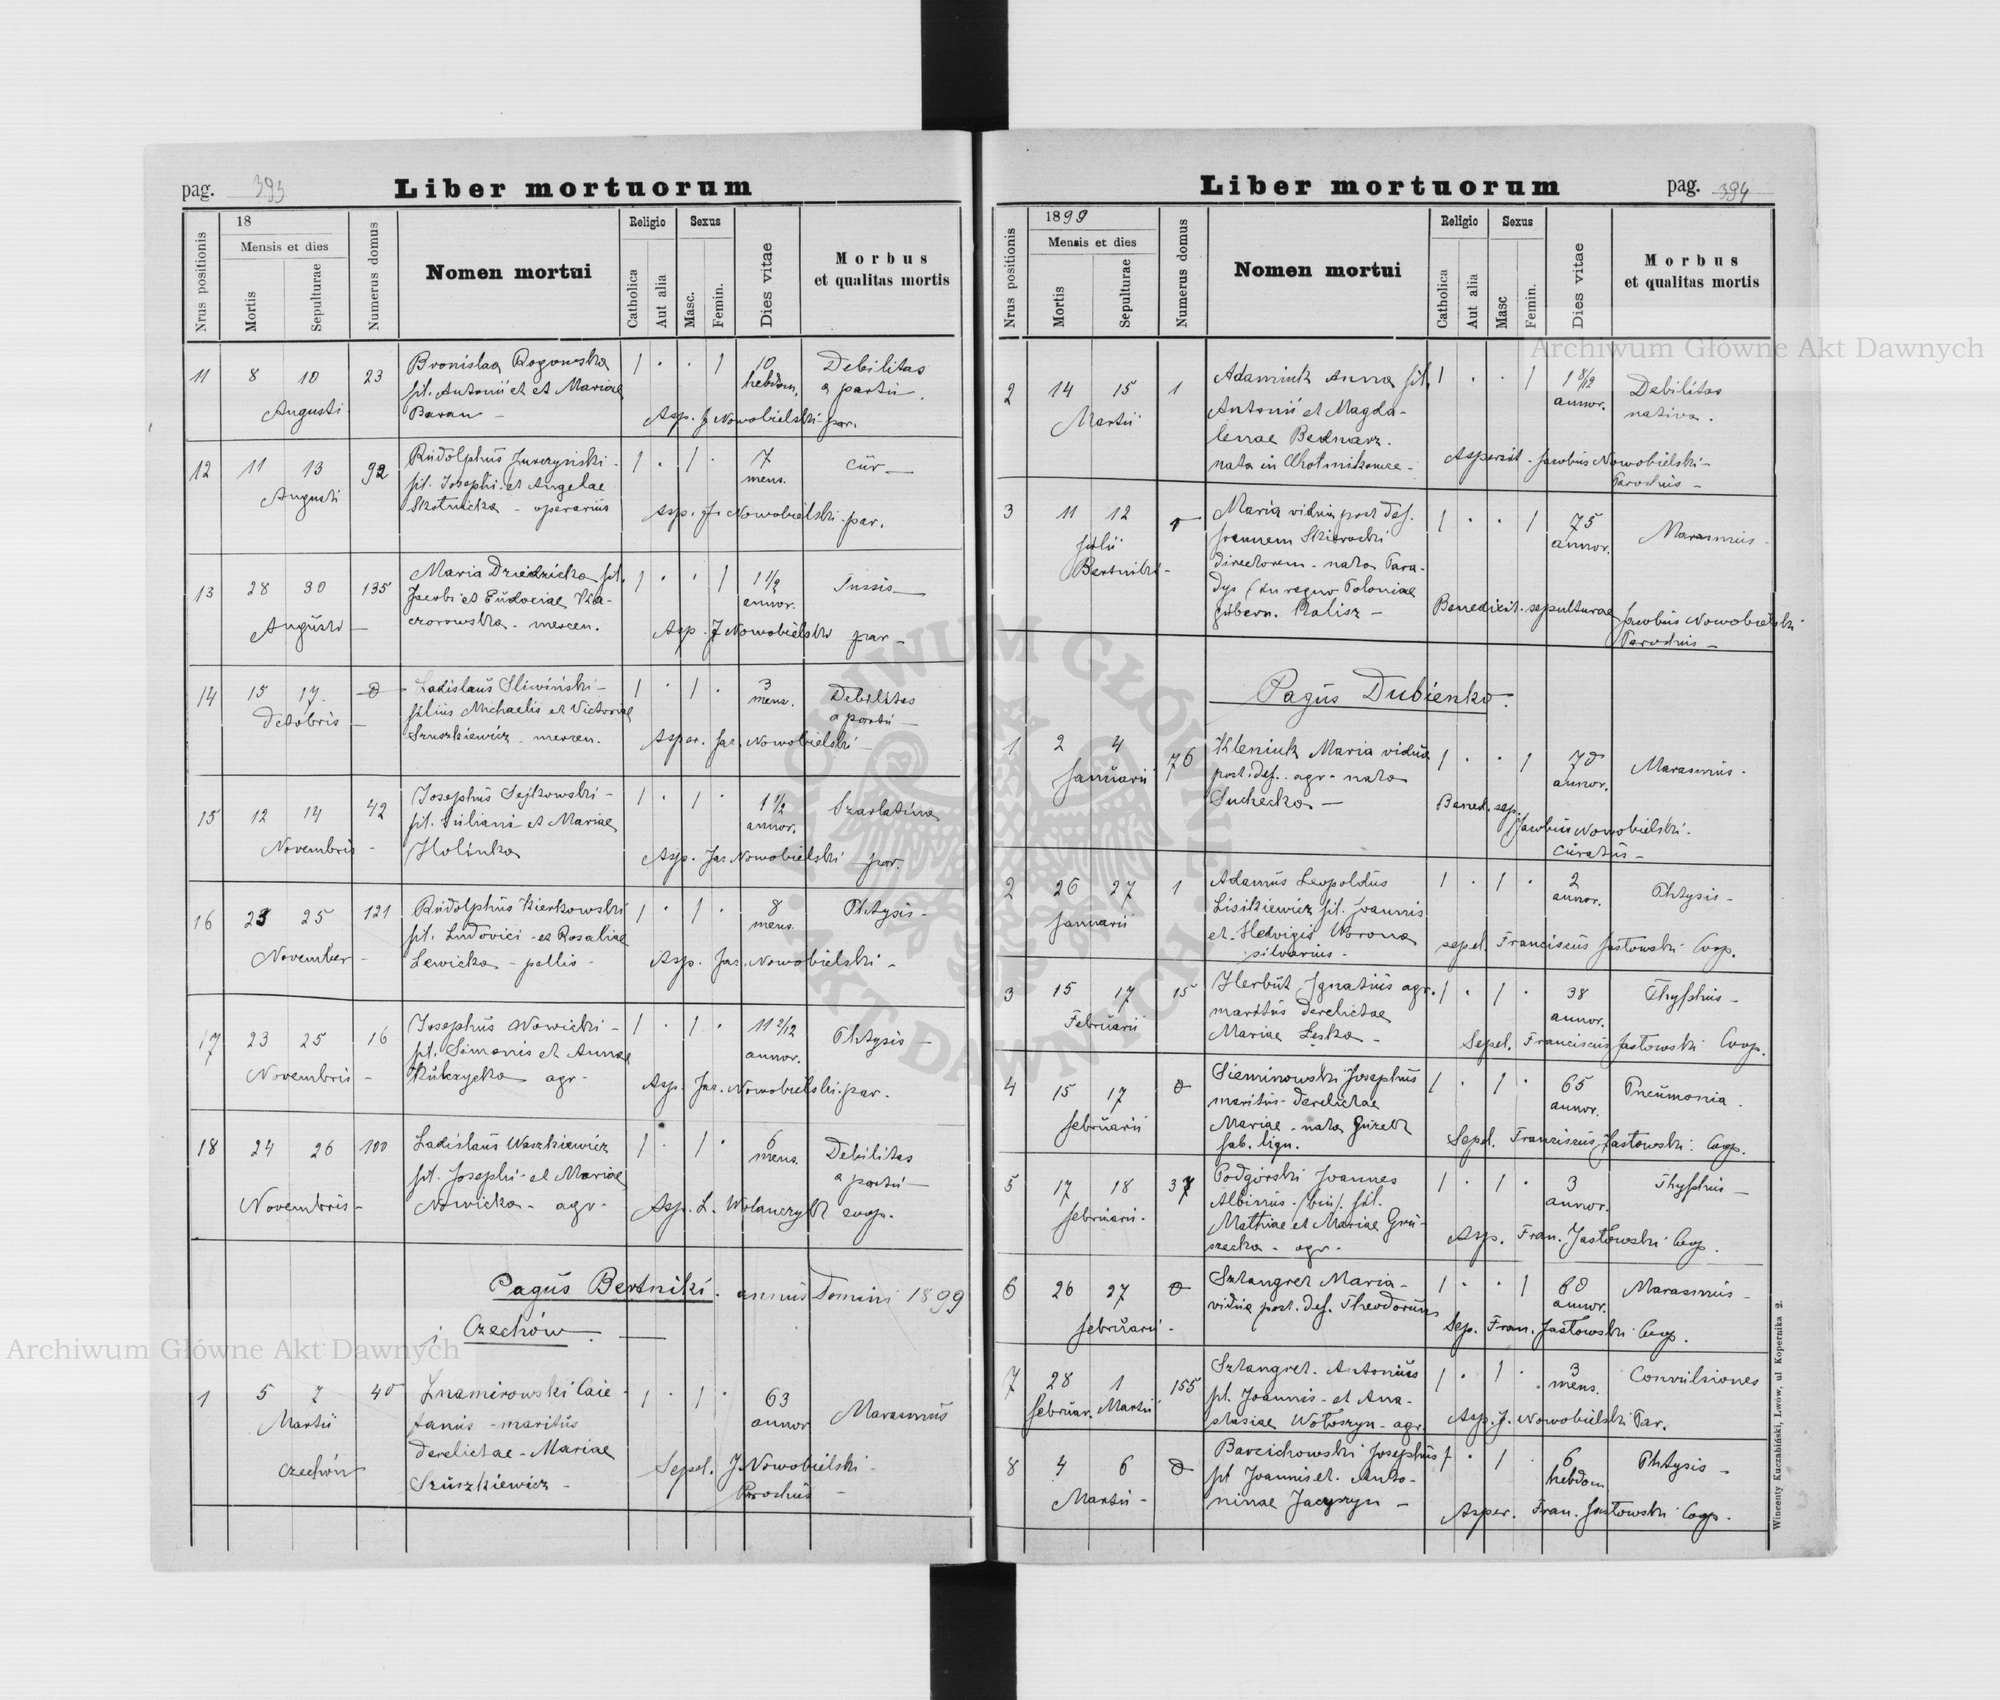 pag. 393
Liber mortuorum
Nrus positionis
18
Mensis et dies
Mortis
Sepulturae
Numerus domus
Nomen mortui
Religio
Catholica
Aut alia
Sexus
Masc.
Femin.
Dies vitae
Morbus
et qualitas mortis
11 8 10 23 Bronislaa Rogowska 1 . . 1 10 Debilitas
fil. Antonii et Mariae hebdom. a partu.
Augusti Baran - Asp. J Nowobielski par.
12 11 13 92 Rudolphus Jurczynski - 1 . 1 . 7
fil. Josephi et Angelae mens.
Augusti Skotnicka - operarius Asp. J. Nowobielski par.
13 28 30 135 Maria Dziedzicka fil. 1 . . 1 1 1/2 Tussis
Jacobi et Eudociae annor.
Augusti czorowska - mercen. Asp. J Nowobielski par -
14 15 17. Ladislaus Sliwiński - 1 . 1 . 3 Debilitas
Octobris filius Michaelis et Victoriae mens. a partu -
Szuszkiewicz mercen. Asper. Jac. Nowobielski -
15 12 14 42 Josephus Sejkowski - 1 . 1 . 1 1/2 Szarlatina
fil. Juliani et Mariae annor.
Novembris - Holinka Asp. Jac Nowobielski par.
16 23 25 121 Rudolphus Kierkowski 1 . 1 . 8 Phtysis -
fil. Ludovici et Rosaliae mens.
November - Lewicka - pellio - Asp. Jac. Nowobielski -
17 23 25 16 Josephus Nowicki - 1 . 1 . 11 2/12 Phtysis -
fil. Simonis et Annae annor.
Novembris - Kulczycka agr. Asp. Jac. Nowobielski par.
18 24 26 100 Ladislaus Waszkiewicz 1 . 1 . 6 Debilitas
fil. Josephi et Mariae mens. a partu -
Novembris - Nowicka - agr. Asp. L. Wolanczyk coop.
Pagus Bertniki. annus Domini 1899
i Czechów.
1 5 7 40 Znamirowski Caie- 1 . 1 . 63 Marasmus
Martii tanus - maritus annor
Czechów derelictae - Mariae
Szuszkiewicz - Sepel. J Nowobielski -
Parochus -
Liber mortuorum
pag. 394
Nrus positionis
1899
Mensis et dies
Mortis
Sepulturae
Numerus domus
Nomen mortui
Religio
Catholica
Aut alia
Sexus
Masc
Femin.
Dies vitae
Morbus
et qualitas mortis
2 14 15 1 Adamiuk Anna fil. 1 . . 1 1 8/12 Debilitas
Martii Antonii et Magda- annor. nativa.
lenae Bednarz.
nata in Asperxit - Jacobus Nowobielski -
Parochus -
3 11 12 1 Maria vidua post def. 1 . . 1 75 Marasmus -
Julii Joannem annor.
Bertniki - directorem - nata Para-
dys (in regno Poloniae Benedixit sepulturae Jacobus Nowobielski
gubern. Kalisz - Parochus -
Pagus Dubienko.
1 2 4 76 Kleniuk Maria vidua 1 . . 1 70 Marasmus -
Januarii post def. agr. nata annor.
Suchecka - Bened. sep.
Jacobus Nowobielski.
Curatus -
2 26 27 1 Adamus Leopoldus 1 . 1 . 2 Phtysis -
Januarii Lisikiewicz fil. Joannis annor.
et Hedvigis Worona sepel. Franciscus Jastowski Coop.
silvarius -
3 15 17 15 Herbut Ignatius agr. 1 . 1 . 38 Thyphus -
Februarii maritus derelictae annor.
Mariae Łęska - Sepel. Franciscus Jastowski Coop.
4 15 17 Sieminowski Josephus 1 . 1 . 65 Pneumonia.
februarii maritus derelictae annor.
Mariae - nata
fab. lign. Sepel. Franciscus Jastowski Coop.
5 17 18 37 Podgórski Joannes 1 . 1 . 3 Thyphus -
februarii. Albinus (bin). fil. annor.
Mathiae et Mariae Gru-
szecka - agr. Asp. Fran. Jastowski Coop.
6 26 27 Sztangret Maria - 1 . . 1 60 Marasmus -
februarii - vidua post def. Theodorum annor.
Sep. Fran. Jastowski Coop.
7 28 1 155 Sztangret Antonius 1 . 1 . 3 Convulsiones
februar. Martii fil. Joannis et Ana- mens.
stasiae Wołoszyn - agr. Asp. J. Nowobielski Par.
8 4 6 Barcichowski Josephus 1 . 1 . 6 Phtysis -
Martii - fil Joannis et Anto- hebdom
ninae Jacyszyn - Asper. Fran. Jastowski Coop.
Wincenty Kuczabiński, Lwów, ul Kopernika 2.
Archiwum Główne Akt Dawnych
Archiwum Główne Akt Dawnych
ARCHIWUM GŁÓWNE AKT DAWNYCH